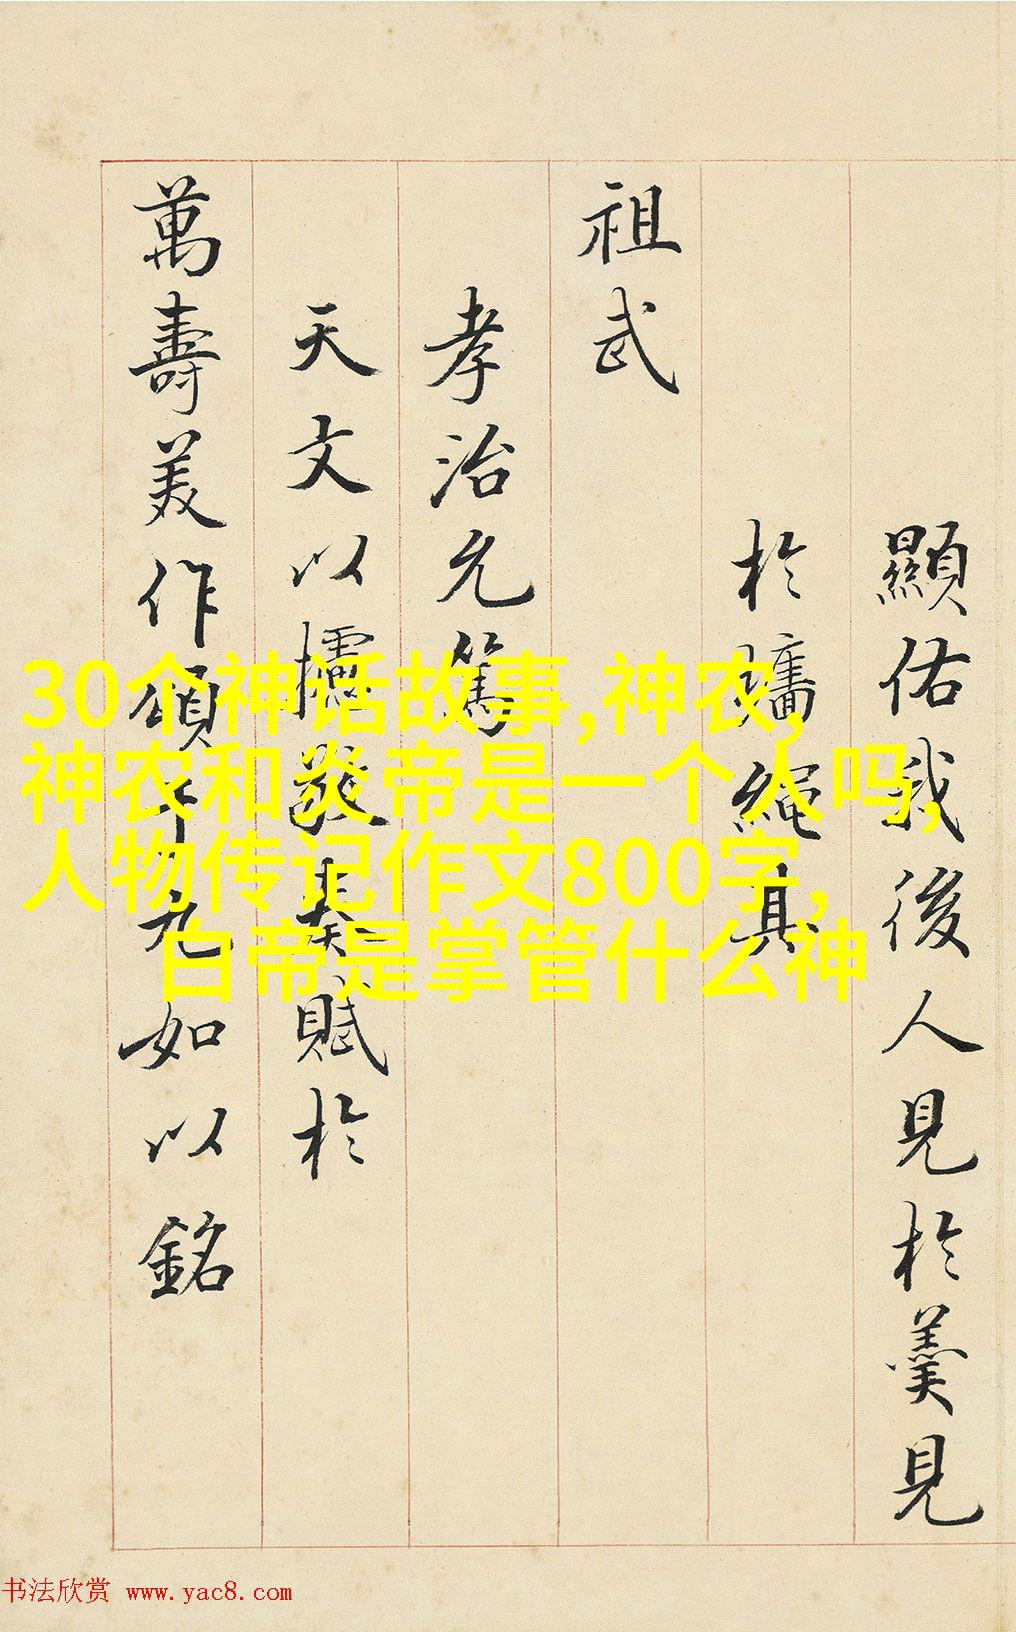 顯佑我後人見於羹見
於牆繩其
祖武
孝治允篤
天文以攄敬奏賦於
萬壽美作頌於九如以銘
30个神话故事,神农,
神农和炎帝是一个人吗,
人物传记作文800字,
白帝是掌管什么神
书法欣赏 www.yac8.com